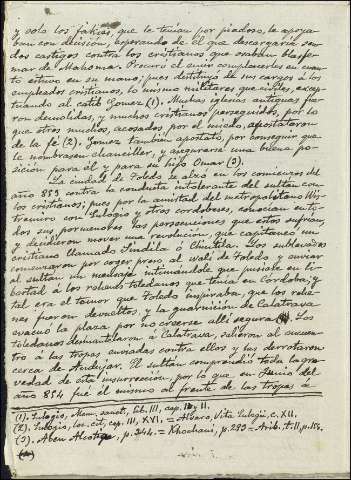 y solo los fakíes, que le tenían por piadoso, le apoya-
ban con decisión, esperando de él que descargaría seve-
ros castigos contra los cristianos que osaban blasfe-
mar de Mahoma. Procuró el emir complacerles en cuan-
to estuvo en su mano; pues destituyó de sus cargos á los
empleados cristianos, lo mismo militares que civiles, excep-
tuando al catib Gomez (1). Muchas iglesias antiguas fue-
ron demolidas, y muchos cristianos perseguidos, por lo
que otros muchos, acosados por el miedo, apostataron
de la fé (2). Gomez también apostató, por conseguir que
le nombrasen chanciller, y asegurarse una buena po-
sición para él y para su hijo Omar (3).
La ciudad de Toledo se alzó en los comienzos del
año 853 contra la conducta intolerante del sultán con
los cristianos; pues por la amistad del metropolitano Wis-
tremiro con Eulogio y otros cordobeses, conocían en to-
dos sus pormenores las persecuciones que estos sufrían
y decidieron mover una revolución, que capitaneó un
cristiano llamado Sindila ó Chintila. Los sublevados
comenzaron por coger preso al walí de Toledo y enviar
al sultán un mensaje intimándole que pusiese en li-
bertad á los rehenes toledanos que tenía en Córdoba; y
tal era el temor que Toledo inspiraba, que los rehe-
nes fueron devueltos, y la guarnición de Calatrava
evacuó la plaza por no creerse allí segura. Los
toledanos desmantelaron á Calatrava, salieron al encuen-
tro á las tropas enviadas contra ellos y las derrotaron
cerca de Andujar. El sultán comprendió toda la gra-
vedad de esta insurrección, por lo que en Junio del
año 854 fué el mismo al frente de las tropas á
(1). Eulogio, Mem. sanct., lib. III, cap. II.
(2). Eulogio, loc. cit., cap. III, XVI. = Alvaro, Vita Eulogii, c. XII.
(3). Aben Alcotiya, p. 244. = Khochani, p. 293 = Arib. t. II, p. 154.